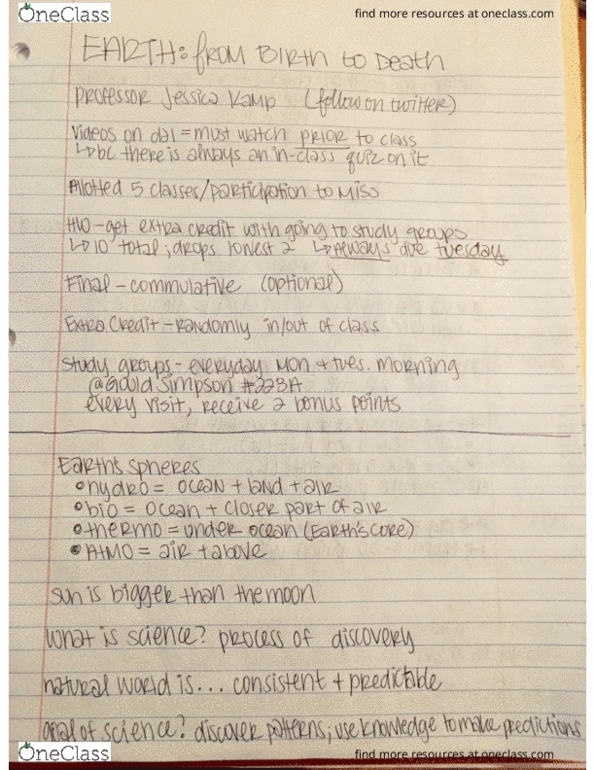 OneClass
find more resources at oneclass.com
EARTH: from Birth to Death
Professor Jessica Kamp (follow on twitter)
Videos on d2l = must watch PRIOR to class
↳ bc there is always an in-class quiz on it
Allotted 5 classes/participation to miss
HW - get extra credit with going to study groups
↳ 10 total; drops lowest 2 ↳ Always due Tuesday
Final - commulative (optional)
Extra Credit - Randomly in/out of class
Study groups - everyday Mon + Tues. morning
@Gould Simpson #223A
every visit, receive 2 bonus points
Earth's spheres
• hydro = ocean + land + air
• bio = ocean + closer part of air
• thermo = under ocean (Earth's core)
• ATMO = air + above
sun is bigger than the moon
what is science? process of discovery
natural world is... consistent + predictable
goal of science? discover patterns; use knowledge to make predictions
OneClass
find more resources at oneclass.com